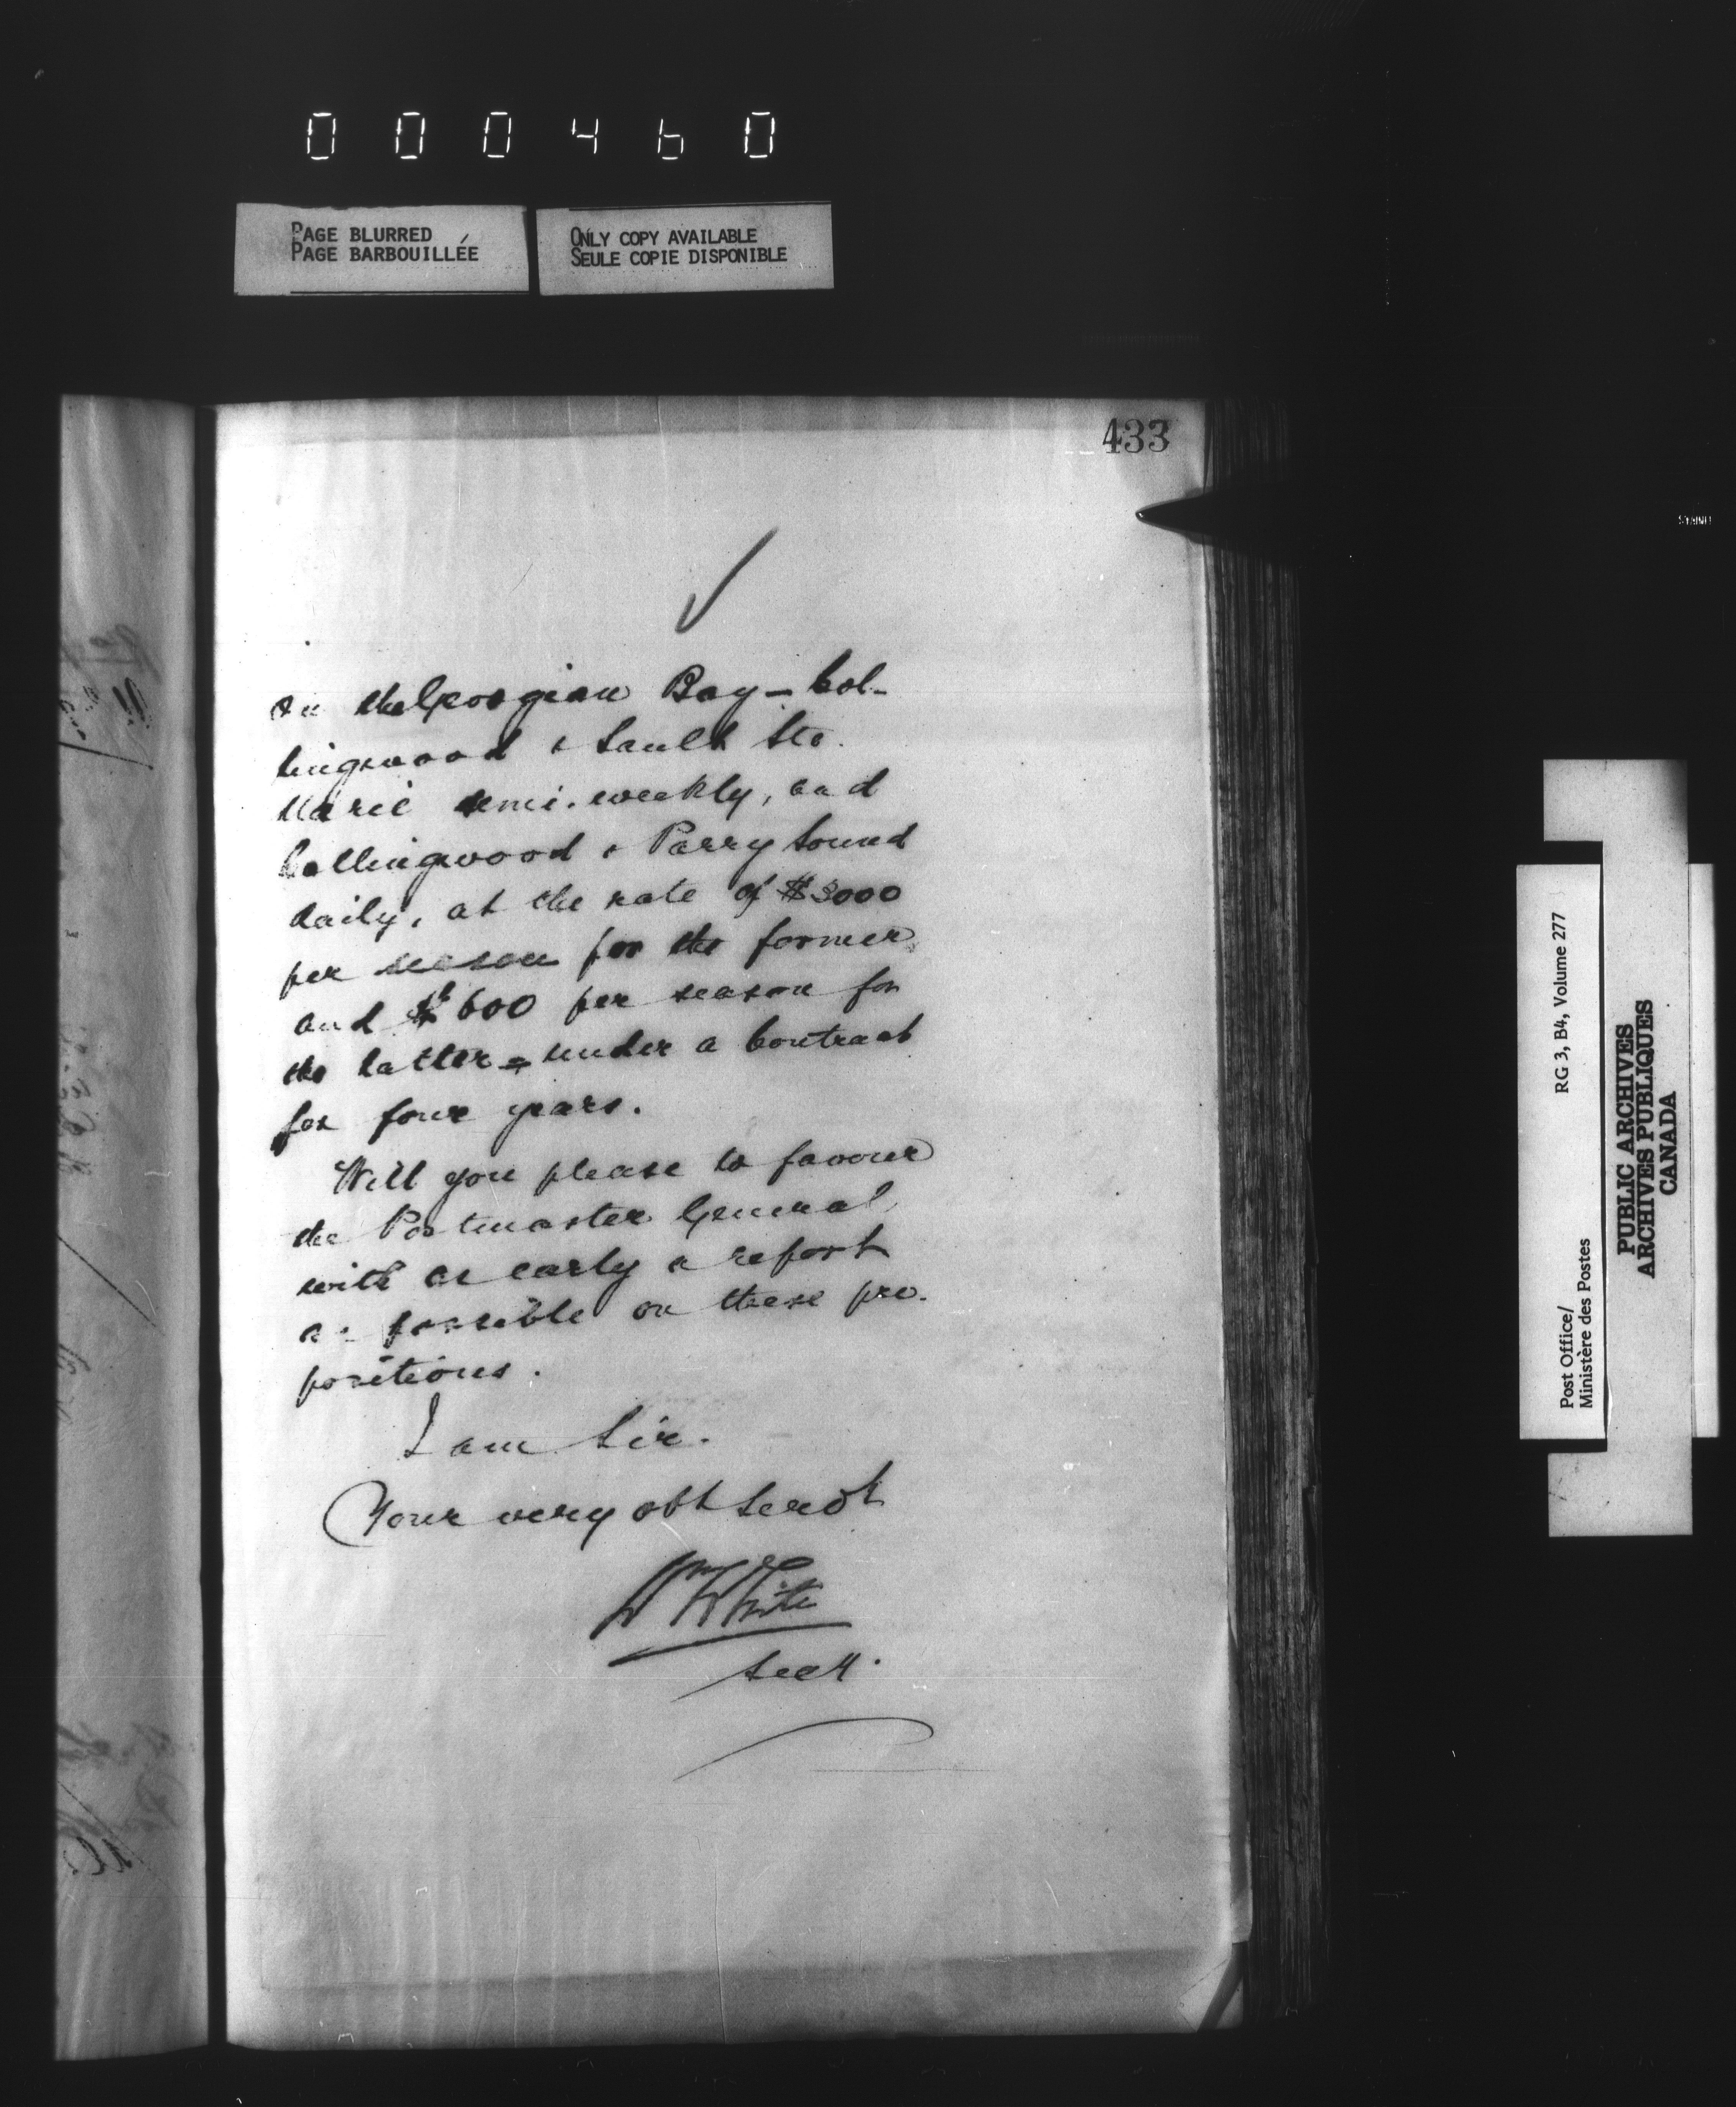 000460
PAGE BLURRED
PAGE BARBOUILLÉE
ONLY COPY AVAILABLE
SEULE COPIE DISPONIBLE
433
on the Georgian Bay – Col-
lingwood & Sault Ste.
Marie semi-weekly, and
Collingwood & Parry Sound
daily, at the rate of $3000
per season for the former
and $600 per season for
the latter = under a Contract
for four years.
Will you please to favour
the Postmaster General
with as early a report
as possible on these pro-
positions.
I am Sir.
Your very obt servt
Wm White
Secy.
Post Office/
Ministère des Postes
RG 3, B4, Volume 277
PUBLIC ARCHIVES
ARCHIVES PUBLIQUES
CANADA